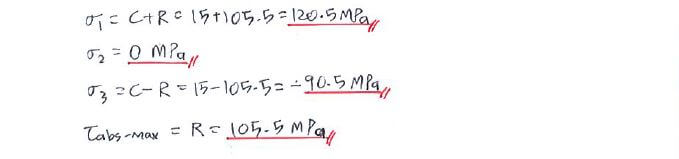 σ₁ = C+R = 15+105.5 = 120.5 MPa
σ₂ = 0 MPa
σ₃ = C-R = 15-105.5 = -90.5 MPa
τabs-max = R = 105.5 MPa